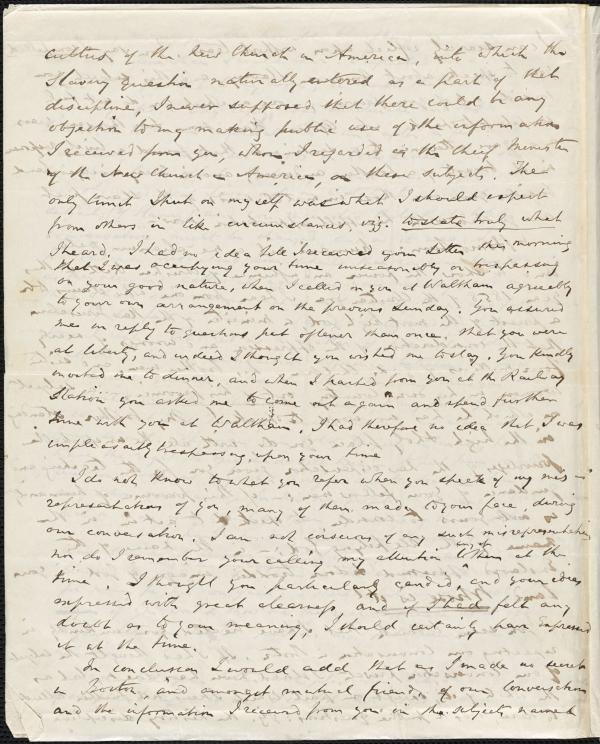 cultus of the New Church in America, into which the
Slavery question naturally entered as a part of that
discipline, I never supposed that there could be any
objection to my making public use of the information
I received from you, whom I regarded as the Chief Minister
of the New Church in America, on these subjects. The
only limit I put on myself was what I should expect
from others in like circumstances viz. to state truly what
I heard. I had no idea till I received your letter this morning
that I was occupying your time unreasonably or trespassing
on your good nature, when I called on you at Waltham agreeably
to your own arrangement on the previous Sunday. You assured
me in reply to questions put oftener than once, that you were
at liberty, and indeed I thought you wished me to stay. You kindly
invited me to dinner, and when I parted from you at the Railway
Station you asked me to come out again and spend further
time with you at Waltham. I had therefore no idea that I was
unpleasantly trespassing upon your time.
I do not know to what you refer when you speak of my mis-
representations of you, many of them made to your face, during
our conversation. I am not conscious of any such misrepresentation
nor do I remember your calling my attention to them at the
time. I thought you particularly candid, and your ideas
expressed with great clearness and if I had felt any
doubt as to your meaning, I should certainly have expressed
it at the time.
In conclusion I would add that as I made no secret
in Boston, and amongst mutual friends, of our Conversation
and the information I received from you on the subjects named